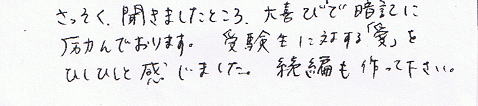 さっそく、聞きましたところ、大喜びで暗記に
励んでおります。 受験生に対する「愛」を
ひしひしと感じました。続編も作って下さい。